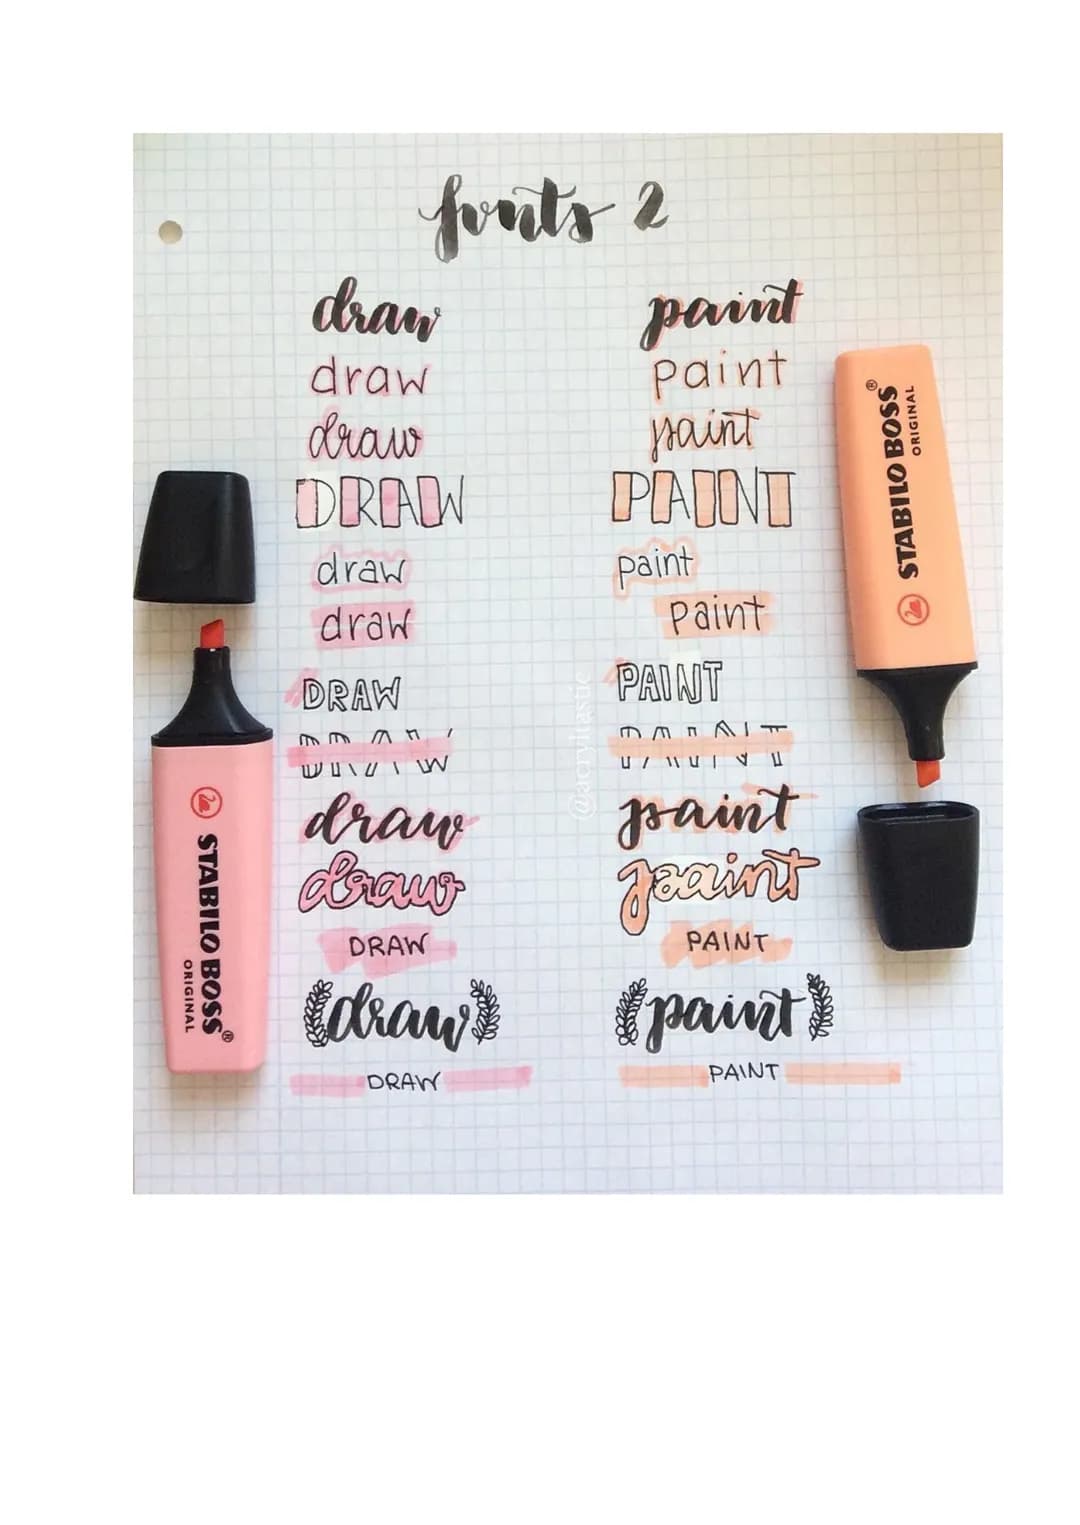 fonts 2
draw paint
draw paint
draw paint
DRAW PAINT
draw paint
draw paint
DRAW PAINT
DRAW PAINT
draw paint
draw paint
DRAW PAINT
draw paint
DRAW PAINT
STABILO BOSS®
ORIGINAL
STABILO BOSS®
ORIGINAL
@acryltastic